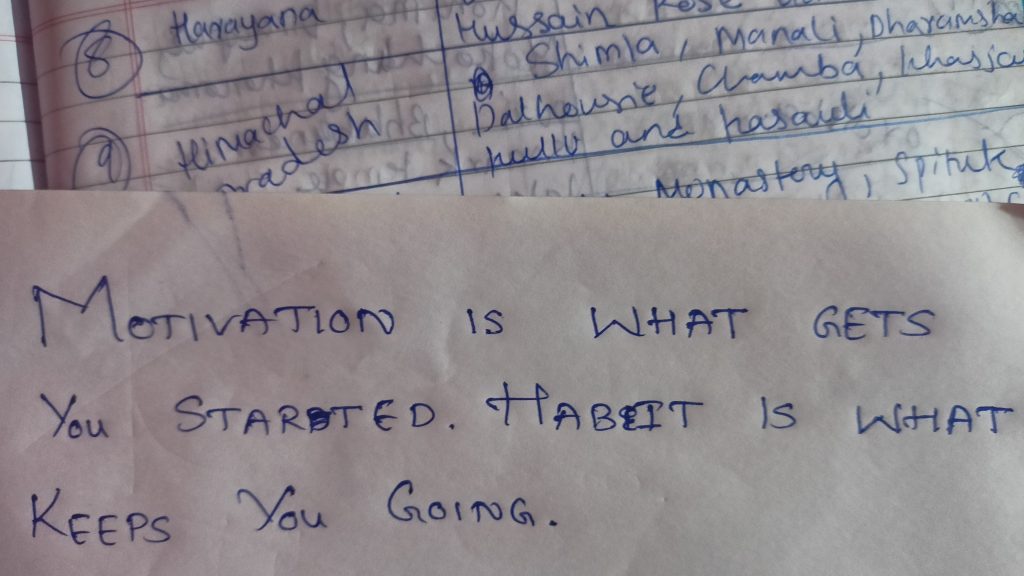 8 Harayana Hussain
Shimla, Manali, Dharamsha
9 Himachal Dalhousie, Chamba, khajja
pradesh kullu and kasauli
Monastery, Spituk
MOTIVATION IS WHAT GETS
YOU STARTED. HABIT IS WHAT
KEEPS YOU GOING.